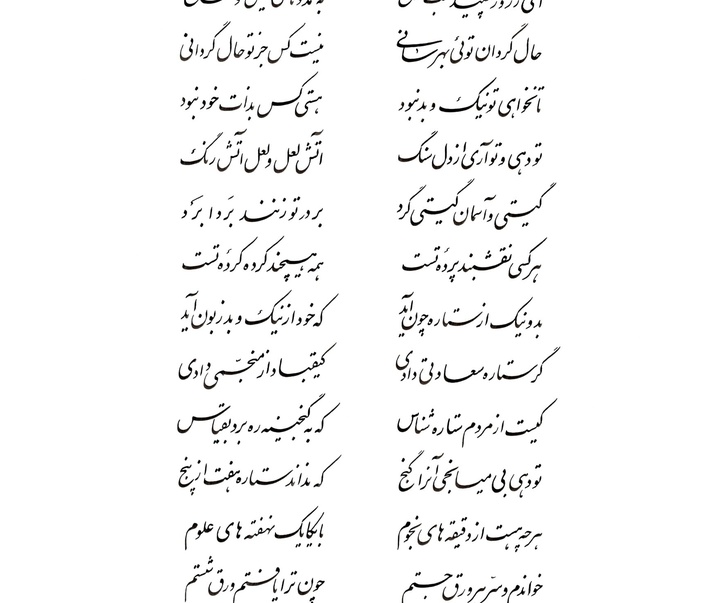 حال گردان توئی بهر سانی نیست کس جز تو حال گردانی
تا نخواهی تو نیک و بد نبود هستی کس بذات خود نبود
تو دهی و تو آری از دل سنگ آتش لعل و لعل آتش رنگ
گیتی و آسمان گیتی گرد بر در تو زنند بَردابرَد
هر کسی نقشبند پردهٔ تست همه هیچند کرده کردهٔ تست
بد و نیک از ستاره چون آید که خود از نیک و بد زبون آید
گر ستاره سعادتی دادی کیقباد از منجّمی
کیست از مردم ستاره شناس که به گنجینه ره برد بقیاس
تو دهی بی میانجی آنرا گنج که نداند ستاره هفت از پنج
هرچه هست از دقیقه های نجوم با یکایک نهفته های علوم
خواندم و سرّ هر ورق جستم چون ترا یافتم ورق شستم